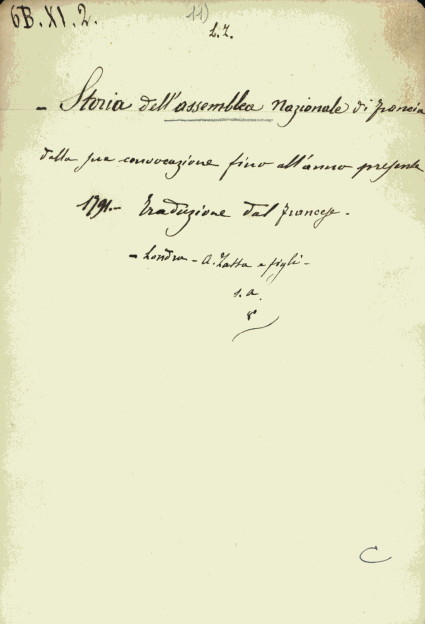 6B.XI.2.
11)
L.Z.
- Storia dell'assemblea nazionale di Francia
dalla sua convocazione fino all'anno presente
1791.- Traduzione dal francese.
- Londra - A. Zatta e figli -
s.a.
8°
C